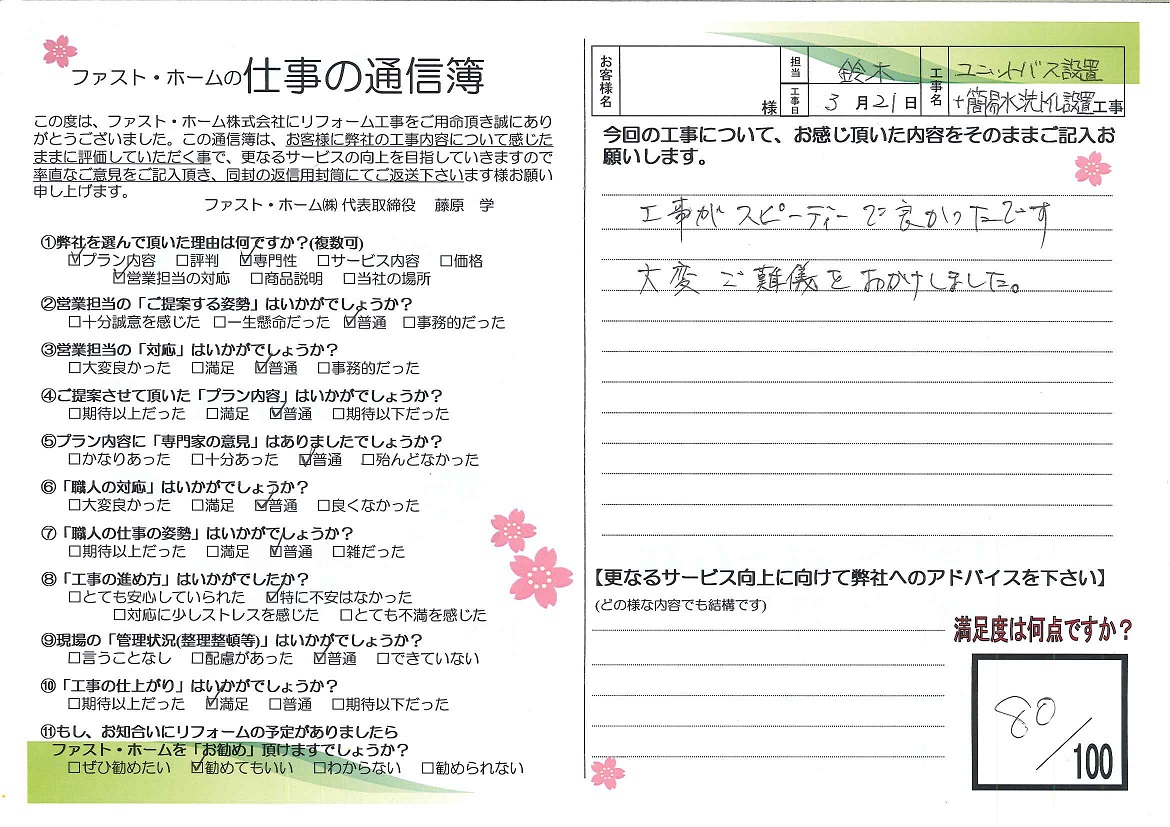 ファスト・ホームの仕事の通信簿
この度は、ファスト・ホーム株式会社にリフォーム工事をご用命頂き誠にあり
がとうございました。この通信簿は、お客様に弊社の工事内容について感じた
ままに評価していただく事で、更なるサービスの向上を目指していきますので
率直なご意見をご記入頂き、同封の返信用封筒にてご返送下さいます様お願い
申し上げます。
ファスト・ホーム㈱ 代表取締役 藤原 学
①弊社を選んで頂いた理由は何ですか？(複数可)
☑プラン内容 □評判 ☑専門性 □サービス内容 □価格
☑営業担当の対応 □商品説明 □当社の場所
②営業担当の「ご提案する姿勢」はいかがでしょうか？
□十分誠意を感じた □一生懸命だった ☑普通 □事務的だった
③営業担当の「対応」はいかがでしょうか？
□大変良かった □満足 ☑普通 □事務的だった
④ご提案させて頂いた「プラン内容」はいかがでしょうか？
□期待以上だった □満足 ☑普通 □期待以下だった
⑤プラン内容に「専門家の意見」はありましたでしょうか？
□かなりあった □十分あった ☑普通 □殆んどなかった
⑥「職人の対応」はいかがでしょうか？
□大変良かった □満足 ☑普通 □良くなかった
⑦「職人の仕事の姿勢」はいかがでしょうか？
□期待以上だった □満足 ☑普通 □雑だった
⑧「工事の進め方」はいかがでしたか？
□とても安心していられた ☑特に不安はなかった
□対応に少しストレスを感じた □とても不満を感じた
⑨現場の「管理状況(整理整頓等)」はいかがでしょうか？
□言うことなし □配慮があった ☑普通 □できていない
⑩「工事の仕上がり」はいかがでしょうか？
□期待以上だった ☑満足 □普通 □期待以下だった
⑪もし、お知合いにリフォームの予定がありましたら
ファスト・ホームを「お勧め」頂けますでしょうか？
□ぜひ勧めたい ☑勧めてもいい □わからない □勧められない
お客様名 様 担当 鈴木 工事名 ユニットバス設置
工事日 3月21日 +簡易水洗トイレ設置工事
今回の工事について、お感じ頂いた内容をそのままご記入お
願いします。
工事がスピーディーで良かったです
大変ご難儀をおかけしました。
【更なるサービス向上に向けて弊社へのアドバイスを下さい】
(どの様な内容でも結構です)
満足度は何点ですか？
80/100